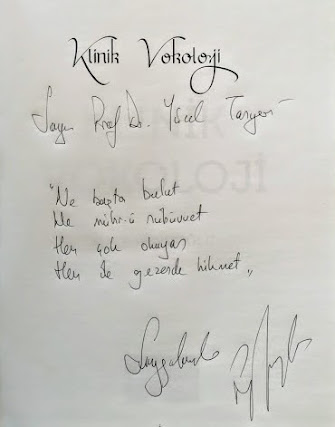 Klinik Vokoloji
Sayın Prof. Dr. Yücel Tanyeri
"Ne başta buhut
Ne mühr-ü nübüvvet
Hem çok okuyan
Hem de gezerde hikmet"
Saygılarımla